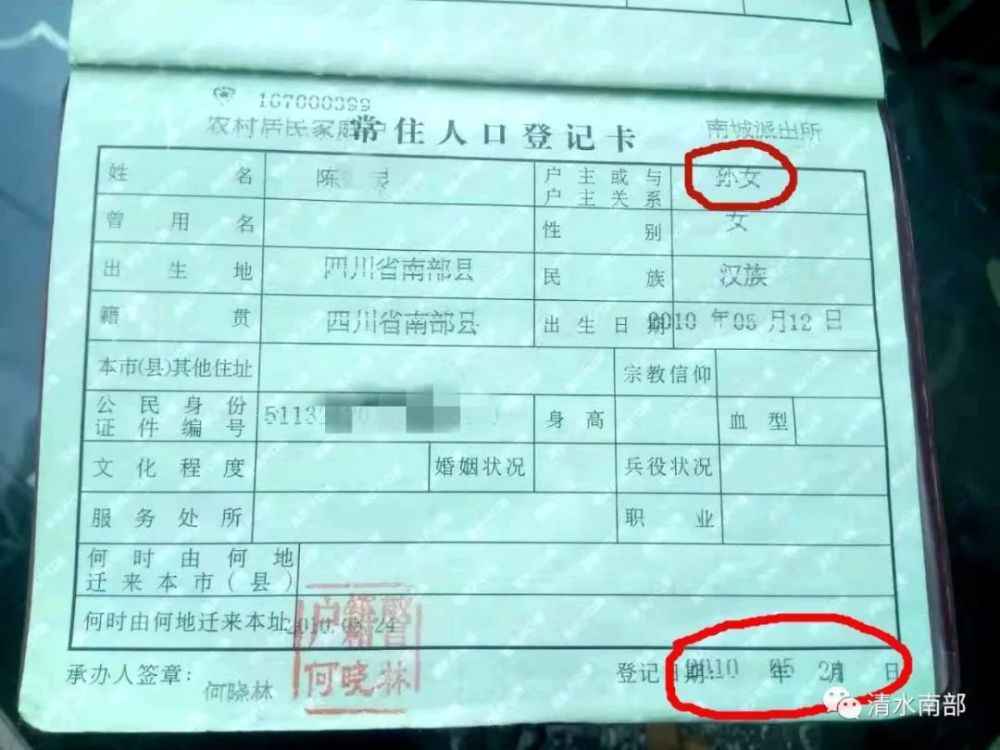 167000399
农村居民家庭户 常住人口登记卡 南城派出所
姓名 陈 灵 户主或与户主关系 孙女
曾用名 性别 女
出生地 四川省南部县 民族 汉族
籍贯 四川省南部县 出生日期 2010 年 05 月 12 日
本市(县)其他住址 宗教信仰
公民身份证件编号 5113 身高 血型
文化程度 婚姻状况 兵役状况
服务处所 职业
何时由何地迁来本市(县)
何时由何地迁来本址 2010.05.24
承办人签章: 何晓林 何晓林 登记日期: 2010 年 05 月 日
清水南部